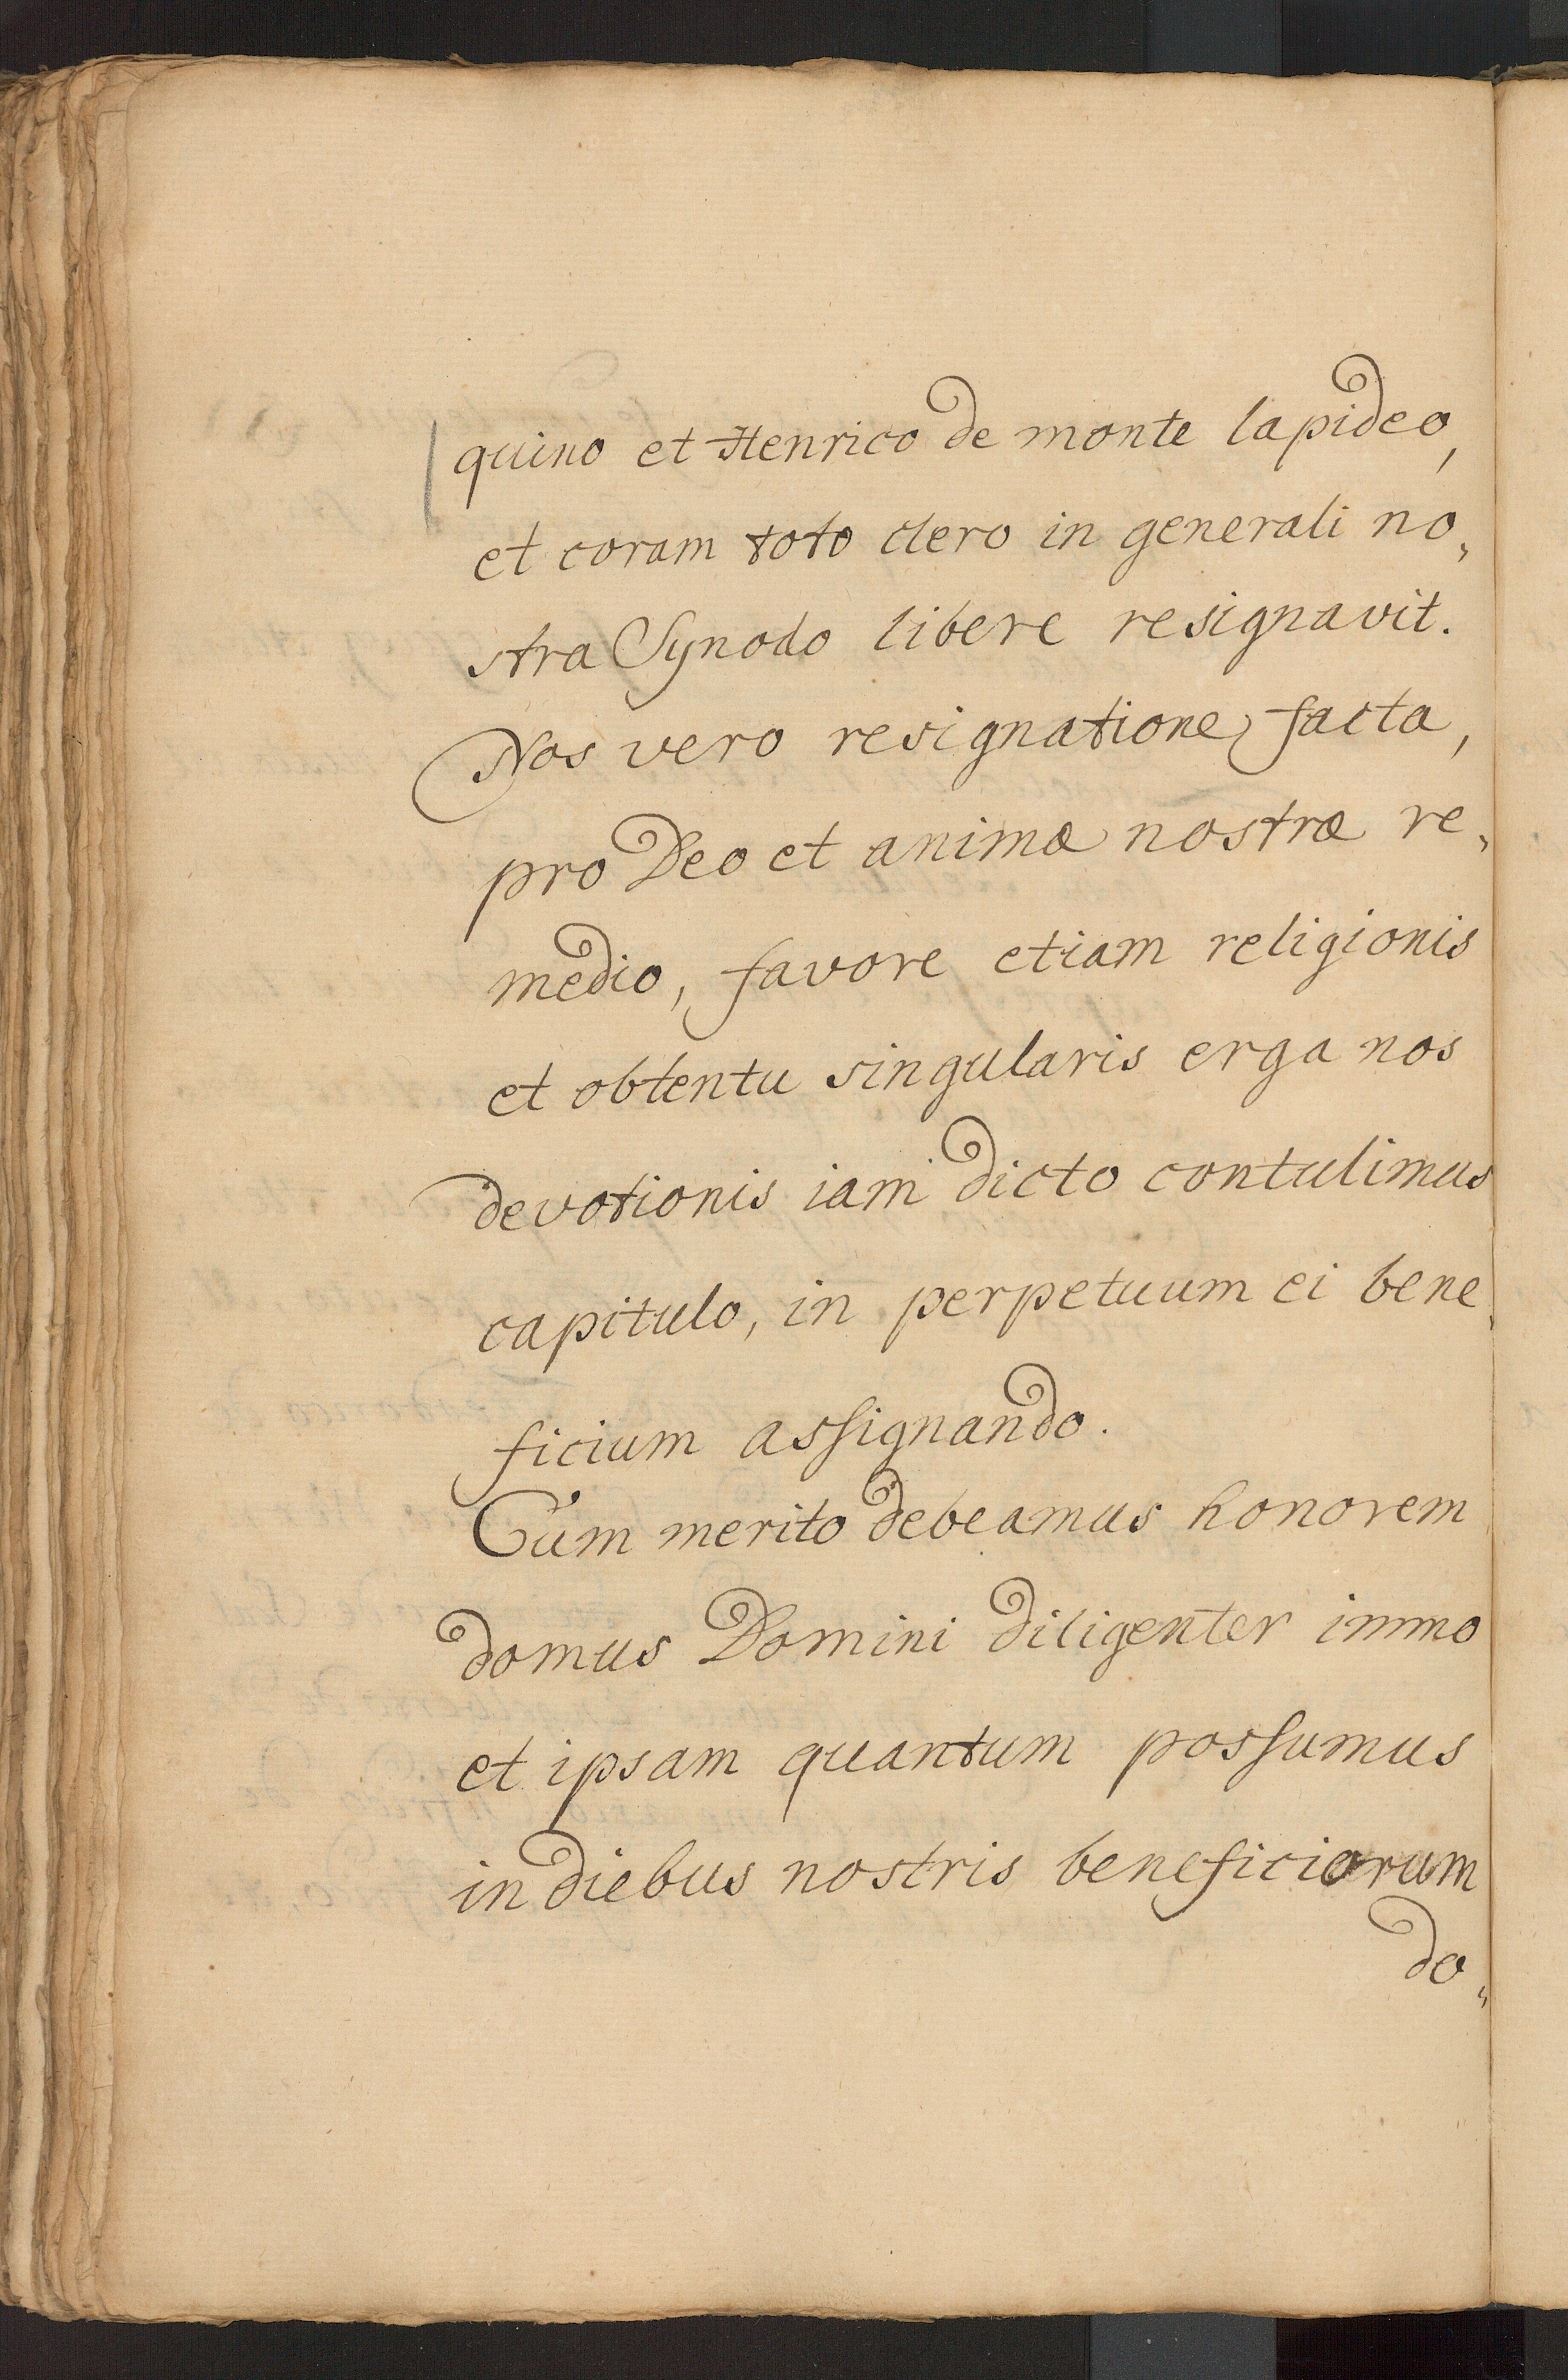 quino et Henrico de monte lapideo,
et coram toto clero in generali no,
stra Synodo libere resignavit.
Nos vero resignatione facta,
pro Deo et animæ nostræ re,
medio, favore etiam religionis
et obtentu singularis erga nos
devotionis iam dicto contulimus
capitulo, in perpetuum ei bene,
ficium assignando.
Cum merito debeamus honorem
domus Domini diligenter immo
et ipsam quantum possumus
in diebus nostris beneficiorum
do,,